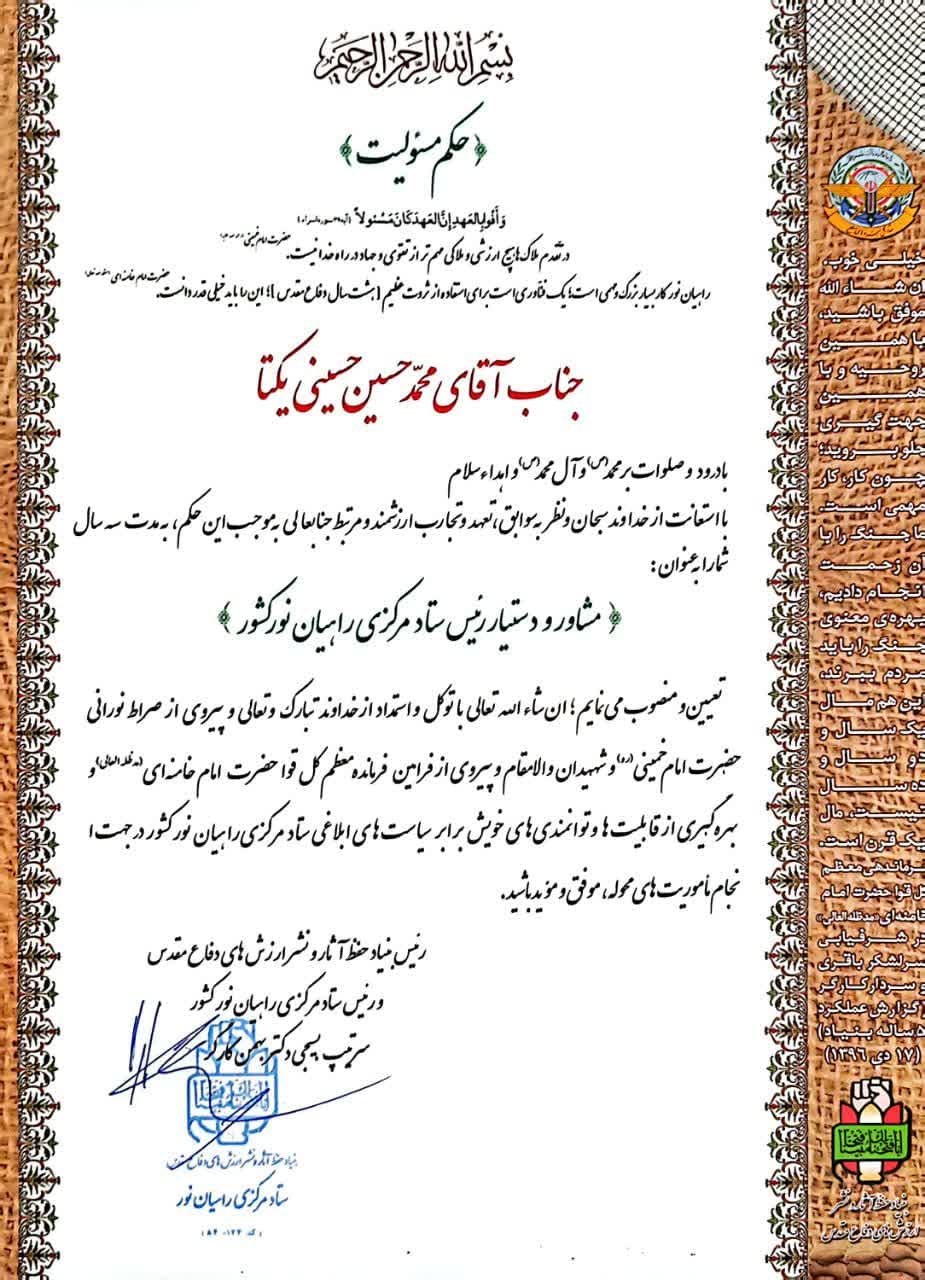 بسم الله الرحمن الرحیم
حکم مسئولیت
وَ أَوْفُوا بِالعَهدِ إِنَّ العَهدَ کَانَ مَسْئُولاً
در تقدم ملاک‌ها هیچ ارزشی و ملاکی مهم تر از تقوی و جهاد در راه خدا نیست. حضرت امام خمینی
راهیان نور کار بسیار بزرگ و مهمی است؛ یک فنّاوری است برای استفاده از ثروت عظیم [هشت سال دفاع مقدس]؛ این را باید خیلی قدر دانست. حضرت امام خامنه ای
جناب آقای محمّد حسین حسینی یکتا
با درود و صلوات بر محمد(ص) و آل محمد(ص) و اهداء سلام
با استعانت از خداوند سبحان و نظر به سوابق، تعهد و تجارب ارزشمند و مرتبط جنابعالی به موجب این حکم، به مدت سه سال
شما را به عنوان:
مشاور و دستیار رئیس ستاد مرکزی راهیان نور کشور
تعیین و منصوب می نمایم؛ ان شاء الله تعالی با توکل و استمداد از خداوند تبارک وتعالی و پیروی از صراط نورانی
حضرت امام خمینی (ره) و شهیدان والامقام و پیروی از فرامین فرمانده معظم کل قوا حضرت امام خامنه ای (مدظله العالی) و
بهره گیری از قابلیت ها و توانمندی های خویش برابر سیاست های ابلاغی ستاد مرکزی راهیان نور کشور در جهت ا
نجام مأموریت های محوله، موفق و مؤید باشید.
رئیس بنیاد حفظ آثار و نشر ارزش های دفاع مقدس
و رئیس ستاد مرکزی راهیان نور کشور
سرتیپ بسیجی دکتر بهمن کارگر
بنیاد حفظ آثار و نشر ارزش های دفاع مقدس
ستاد مرکزی راهیان نور
خیلی خوب،
ان شاء الله
موفق باشید،
با همین
روحیه و با
همین
جهت گیری
جلو بروید؛
چون کار، کار
مهمی است.
ما جنگ را با
آن زحمت
انجام دادیم،
بهره‌ی معنوی
جنگ را باید
مردم ببرند،
این هم مال
یک سال و
دو سال و
ده سال
نیست، مال
یک قرن است.
فرماندهی معظم
کل قوا حضرت امام
خامنه‌ای «مدظله العالی»
در شرفیابی
سرلشکر باقری
و سردار کارگر
گزارش عملکرد
۵ ساله بنیاد)
(۱۷ دی ۱۳۹۶)
بنیاد حفظ آثار و نشر
ارزش های دفاع مقدس